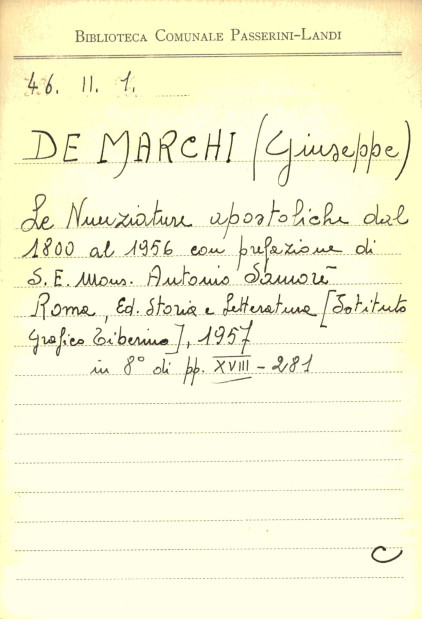 BIBLIOTECA COMUNALE PASSERINI-LANDI
46. II. 1.
DE MARCHI (Giuseppe)
Le Nunziature apostoliche dal
1800 al 1956 con prefazione di
S. E. Mons. Antonio Samorè
Roma, Ed. Storia e Letteratura [Istituto
Grafico Tiberino], 1957
in 8° di pp. XVIII - 281
C